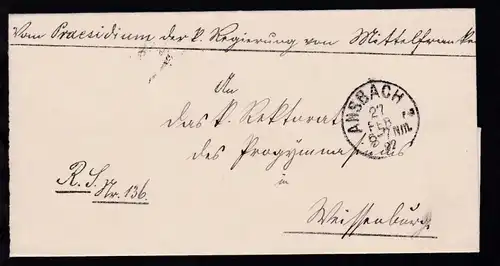 Vom Praesidium der k. Regierung von Mittelfranken
An
das k. Rektorat
des Progymnasiums
in
Weissenburg
R. S.
Nr. 136.
ANSBACH
27
FEB
NM.